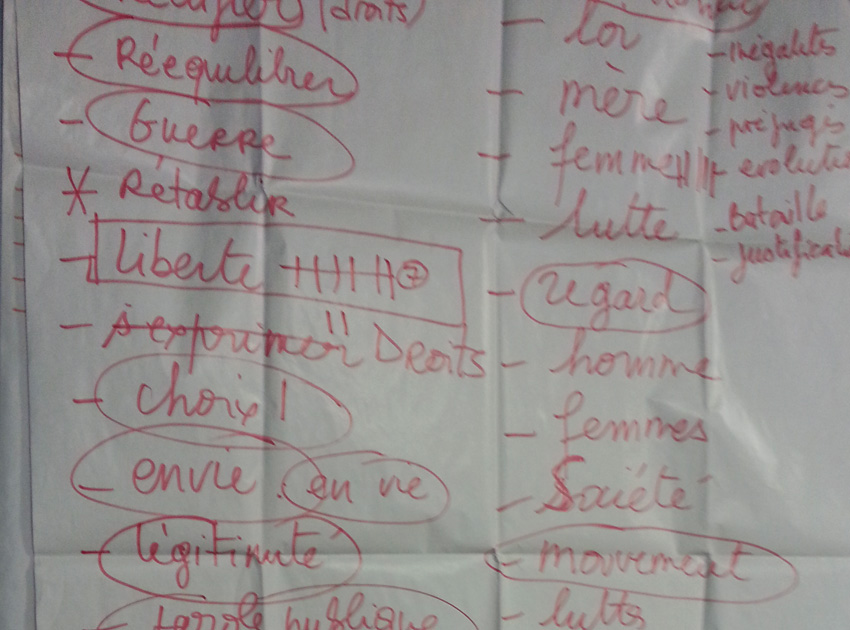 (droits)
- Rééquilibrer
- Guerre
* Rétablir
- Liberté
- s'exprimer Droits
- choix !
- envie. en vie
- légitimité
parole publique
- loi
- mère
- femme
- lutte
- regard
- homme
- femmes
- Société
- mouvement
- lutts
- inégalités
- violences
- préjugés
- bataille